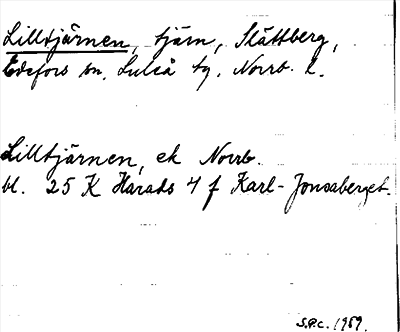 Lilltjärnen, tjärn, Slättberg,
Edefors sn, Luleå tg. Norrb. l.
Lilltjärnen, ek Norrb.
bl. 25 K Harads 4 f Karl-Jonsaberget.
S.P.C. 1959.